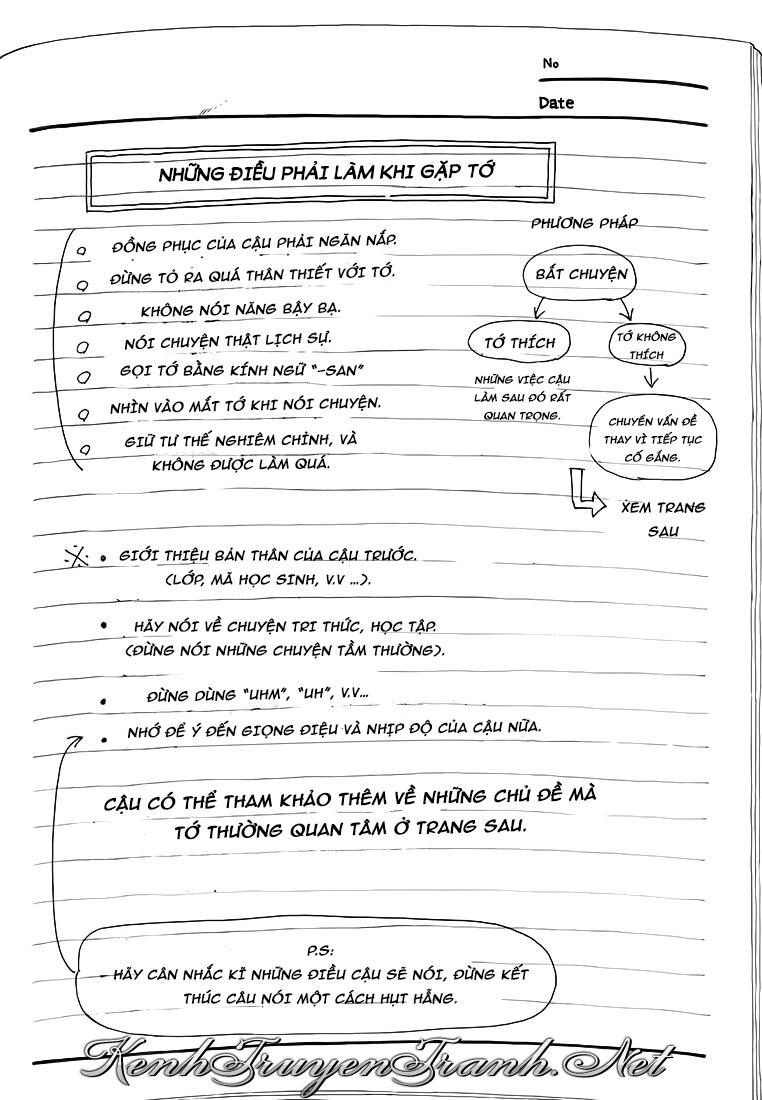 No
Date
NHỮNG ĐIỀU PHẢI LÀM KHI GẶP TỚ
ĐỒNG PHỤC CỦA CẬU PHẢI NGĂN NẮP.
ĐỪNG TỎ RA QUÁ THÂN THIẾT VỚI TỚ.
KHÔNG NÓI NĂNG BẬY BẠ.
NÓI CHUYỆN THẬT LỊCH SỰ.
GỌI TỚ BẰNG KÍNH NGỮ "-SAN"
NHÌN VÀO MẮT TỚ KHI NÓI CHUYỆN.
GIỮ TƯ THẾ NGHIÊM CHỈNH, VÀ
KHÔNG ĐƯỢC LÀM QUÁ.
PHƯƠNG PHÁP
BẮT CHUYỆN
TỚ THÍCH
TỚ KHÔNG
THÍCH
NHỮNG VIỆC CẬU
LÀM SAU ĐÓ RẤT
QUAN TRỌNG.
CHUYỂN VẤN ĐỀ
THAY VÌ TIẾP TỤC
CỐ GẮNG.
XEM TRANG
SAU
※ • GIỚI THIỆU BẢN THÂN CỦA CẬU TRƯỚC.
(LỚP, MÃ HỌC SINH, V.V ...).
• HÃY NÓI VỀ CHUYỆN TRI THỨC, HỌC TẬP.
(ĐỪNG NÓI NHỮNG CHUYỆN TẦM THƯỜNG).
• ĐỪNG DÙNG "UHM", "UH", V.V...
• NHỚ ĐỂ Ý ĐẾN GIỌNG ĐIỆU VÀ NHỊP ĐỘ CỦA CẬU NỮA.
CẬU CÓ THỂ THAM KHẢO THÊM VỀ NHỮNG CHỦ ĐỀ MÀ
TỚ THƯỜNG QUAN TÂM Ở TRANG SAU.
P.S:
- HÃY CÂN NHẮC KĨ NHỮNG ĐIỀU CẬU SẼ NÓI, ĐỪNG KẾT
THÚC CÂU NÓI MỘT CÁCH HỤT HẪNG.
KenhTruyenTranh.Net